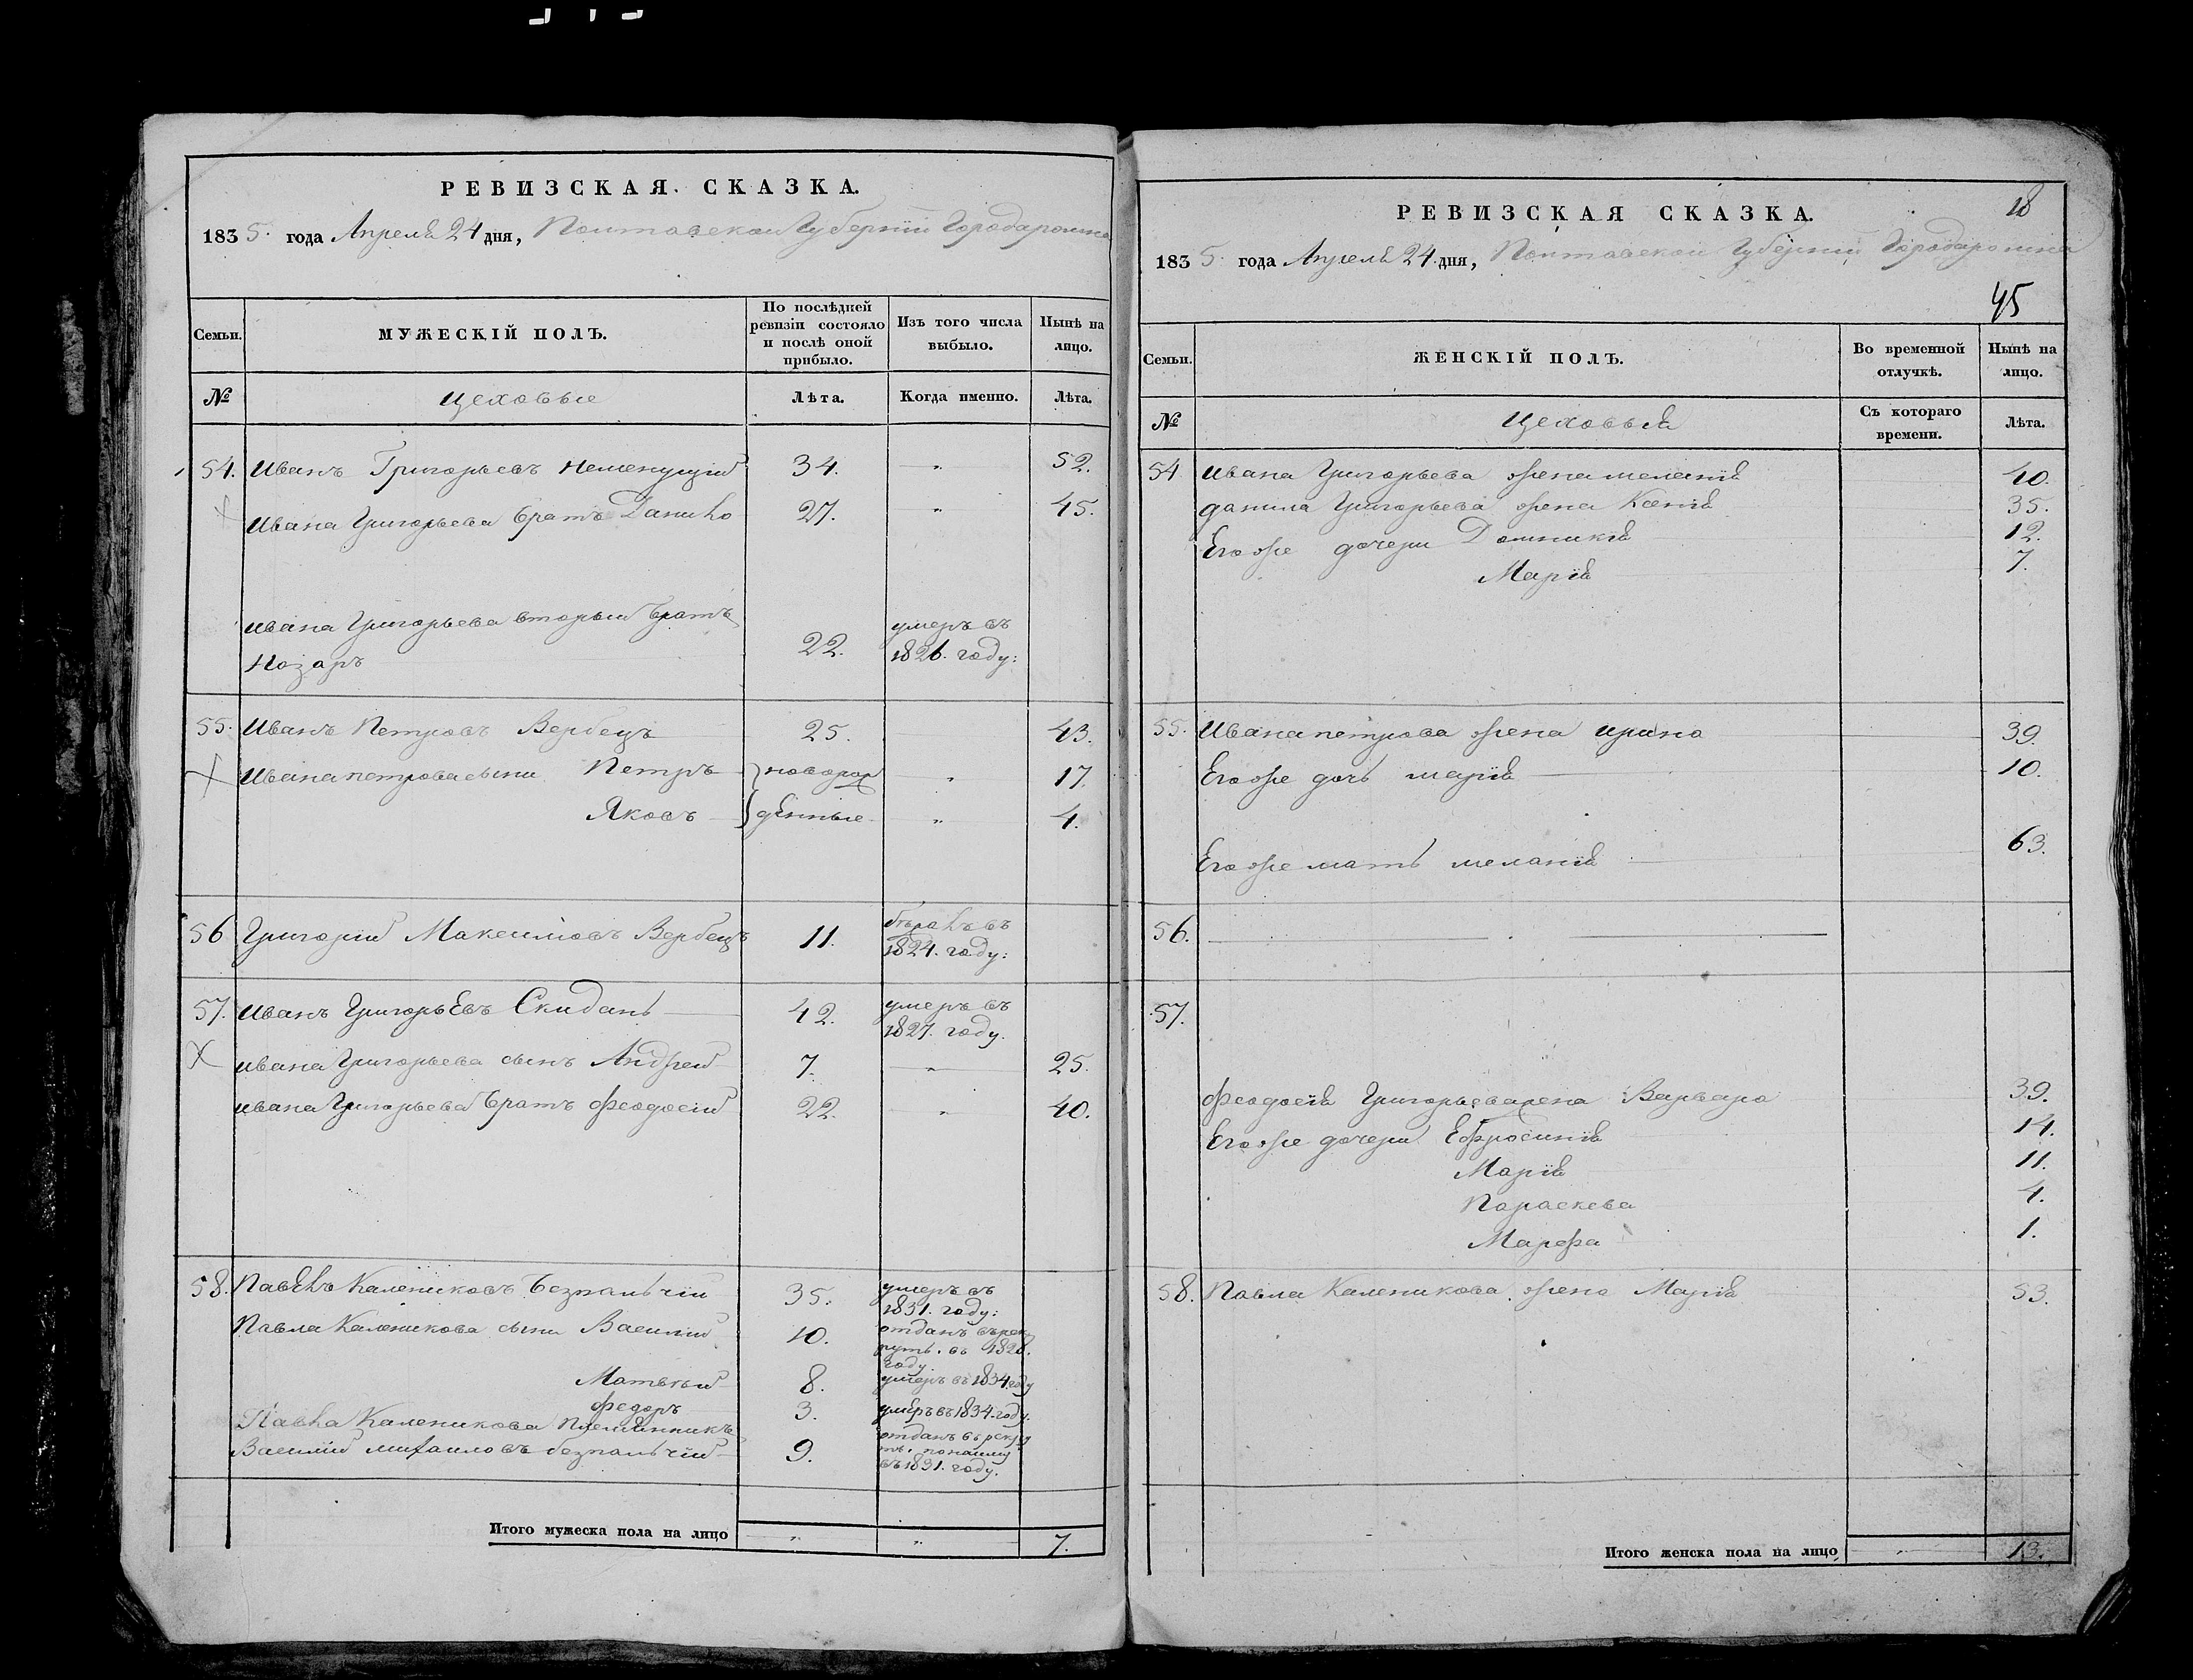 РЕВИЗСКАЯ СКАЗКА.
1835. года Апреля 24 дня, Полтавской Губернии Города Ромна
Семьи.
МУЖЕСКІЙ ПОЛЪ.
По послѣдней ревизіи состояло и послѣ оной прибыло.
Изъ того числа выбыло.
Нынѣ на лицо.
№
цеховые
Лѣта.
Когда именно.
Лѣта.
54. Иванъ Григорьевъ 34. " 52.
Ивана Григорьева братъ Данило 27. " 45.
Ивана Григорьева вторый братъ
Назаръ 22. умеръ въ
1826. году:
55. Иванъ Петровъ Вербецъ 25. 43.
Ивана петрова сыни Петръ новорож " 17.
Яковъ денные " 4.
56 Григорий Максимовъ Вербецъ 11. въ
1824. году:
57. Иванъ ГригорьЕвъ Скидань 42. умеръ въ
1827. году.
Ивана Григорьева сынъ Андрей 7. " 25.
ивана Григорьева братъ феодосий 22. " 40.
58. Павелъ Калениковъ безпальчій 35. умеръ въ
1831. году:
Павла Каленикова сыни Василий 10. отданъ въ рек
руты. въ 1828.
году.
Матвѣй 8. умеръ въ 1834 году
федоръ 3. умеръ въ 1834. году.
Павла Каленикова племянникъ
Василий михаиловъ безпальчій 9. отданъ в рекру
въ 1831. году.
Итого мужеска пола на лицо " " 7.
18
РЕВИЗСКАЯ СКАЗКА.
1835. года Апреля 24. дня, Полтавской Губернии Города Ромна
45
Семьи.
ЖЕНСКІЙ ПОЛЪ.
Во временной отлучкѣ.
Нынѣ на лицо.
№
цеховыя
Съ котораго времени.
Лѣта.
54 Ивана Григорьева жена мелания 40.
данила Григорьева жена Ксения 35.
Его же дочери Домникия 12.
Мария 7.
55. Ивана петрова жена ирина 39.
Его же дочь мария 10.
Его же мать мелания 63.
56.
57.
феодосія Григорьева жена Варвара 39.
Его же дочери Ефросиния 14.
Мария 11.
Параскева 4.
Марфа 1.
58. Павла Каленикова жена Мария 53.
Итого женска пола на лицо 13.